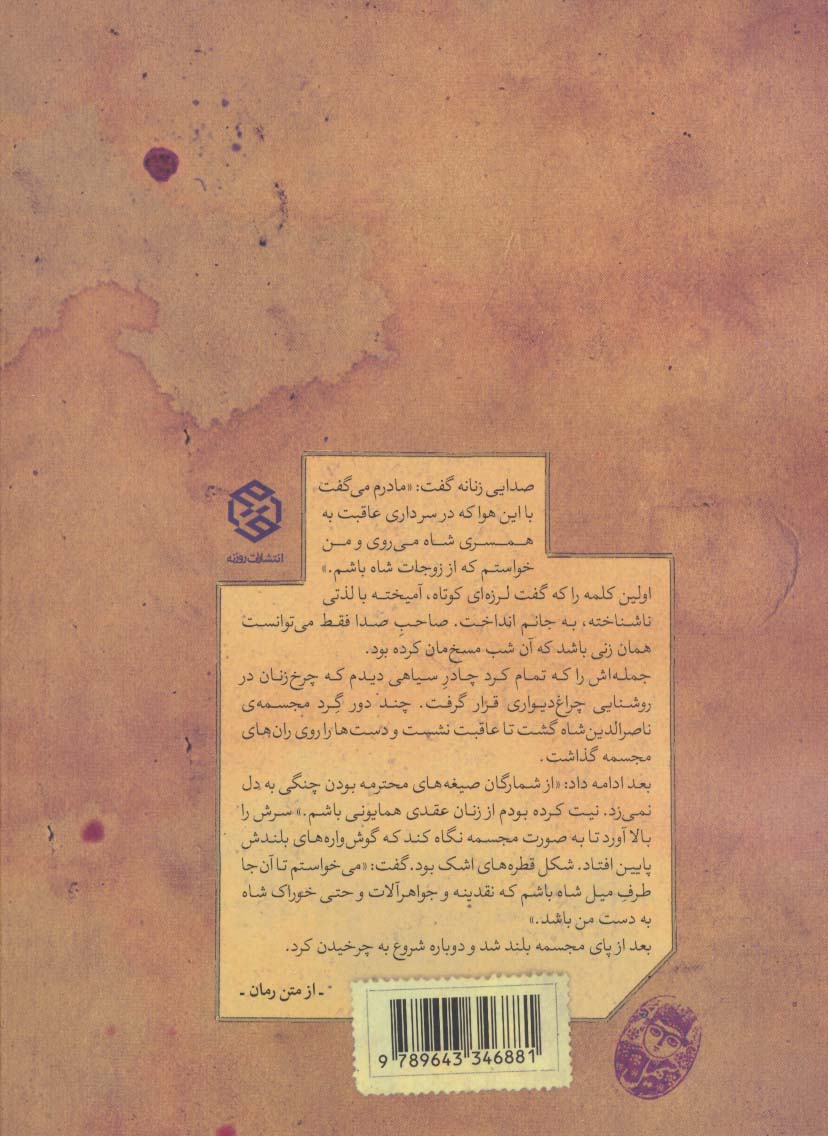 صدایی زنانه گفت: «مادرم می‌گفت
با این هوا که در سر داری عاقبت به
همسری شاه می‌روی و من
خواستم که از زوجات شاه باشم.»
اولین کلمه را که گفت لرزه‌ای کوتاه، آمیخته با لذتی
ناشناخته، به جانم انداخت. صاحبِ صدا فقط می‌توانست
همان زنی باشد که آن شب مسخ‌مان کرده بود.
جمله‌اش را که تمام کرد چادرِ سیاهی دیدم که چرخ‌زنان در
روشناییِ چراغ‌دیواری قرار گرفت. چند دور گِرد مجسمه‌ی
ناصرالدین‌شاه گشت تا عاقبت نشست و دست‌ها را روی ران‌های
مجسمه گذاشت.
بعد ادامه داد: «از شمارگان صیغه‌های محترمه بودن چنگی به دل
نمی‌زد. نیت کرده بودم از زنان عقدی همایونی باشم.» سرش را
بالا آورد تا به صورت مجسمه نگاه کند که گوش‌واره‌های بلندش
پایین افتاد. شکل قطره‌های اشک بود. گفت: «می‌خواستم تا آن‌جا
طرفِ میل شاه باشم که نقدینه و جواهرآلات و حتی خوراک شاه
به دست من باشد.»
بعد از پای مجسمه بلند شد و دوباره شروع به چرخیدن کرد.
ـ از متن رمان ـ
انتشارات روزنه
9 789643 346881